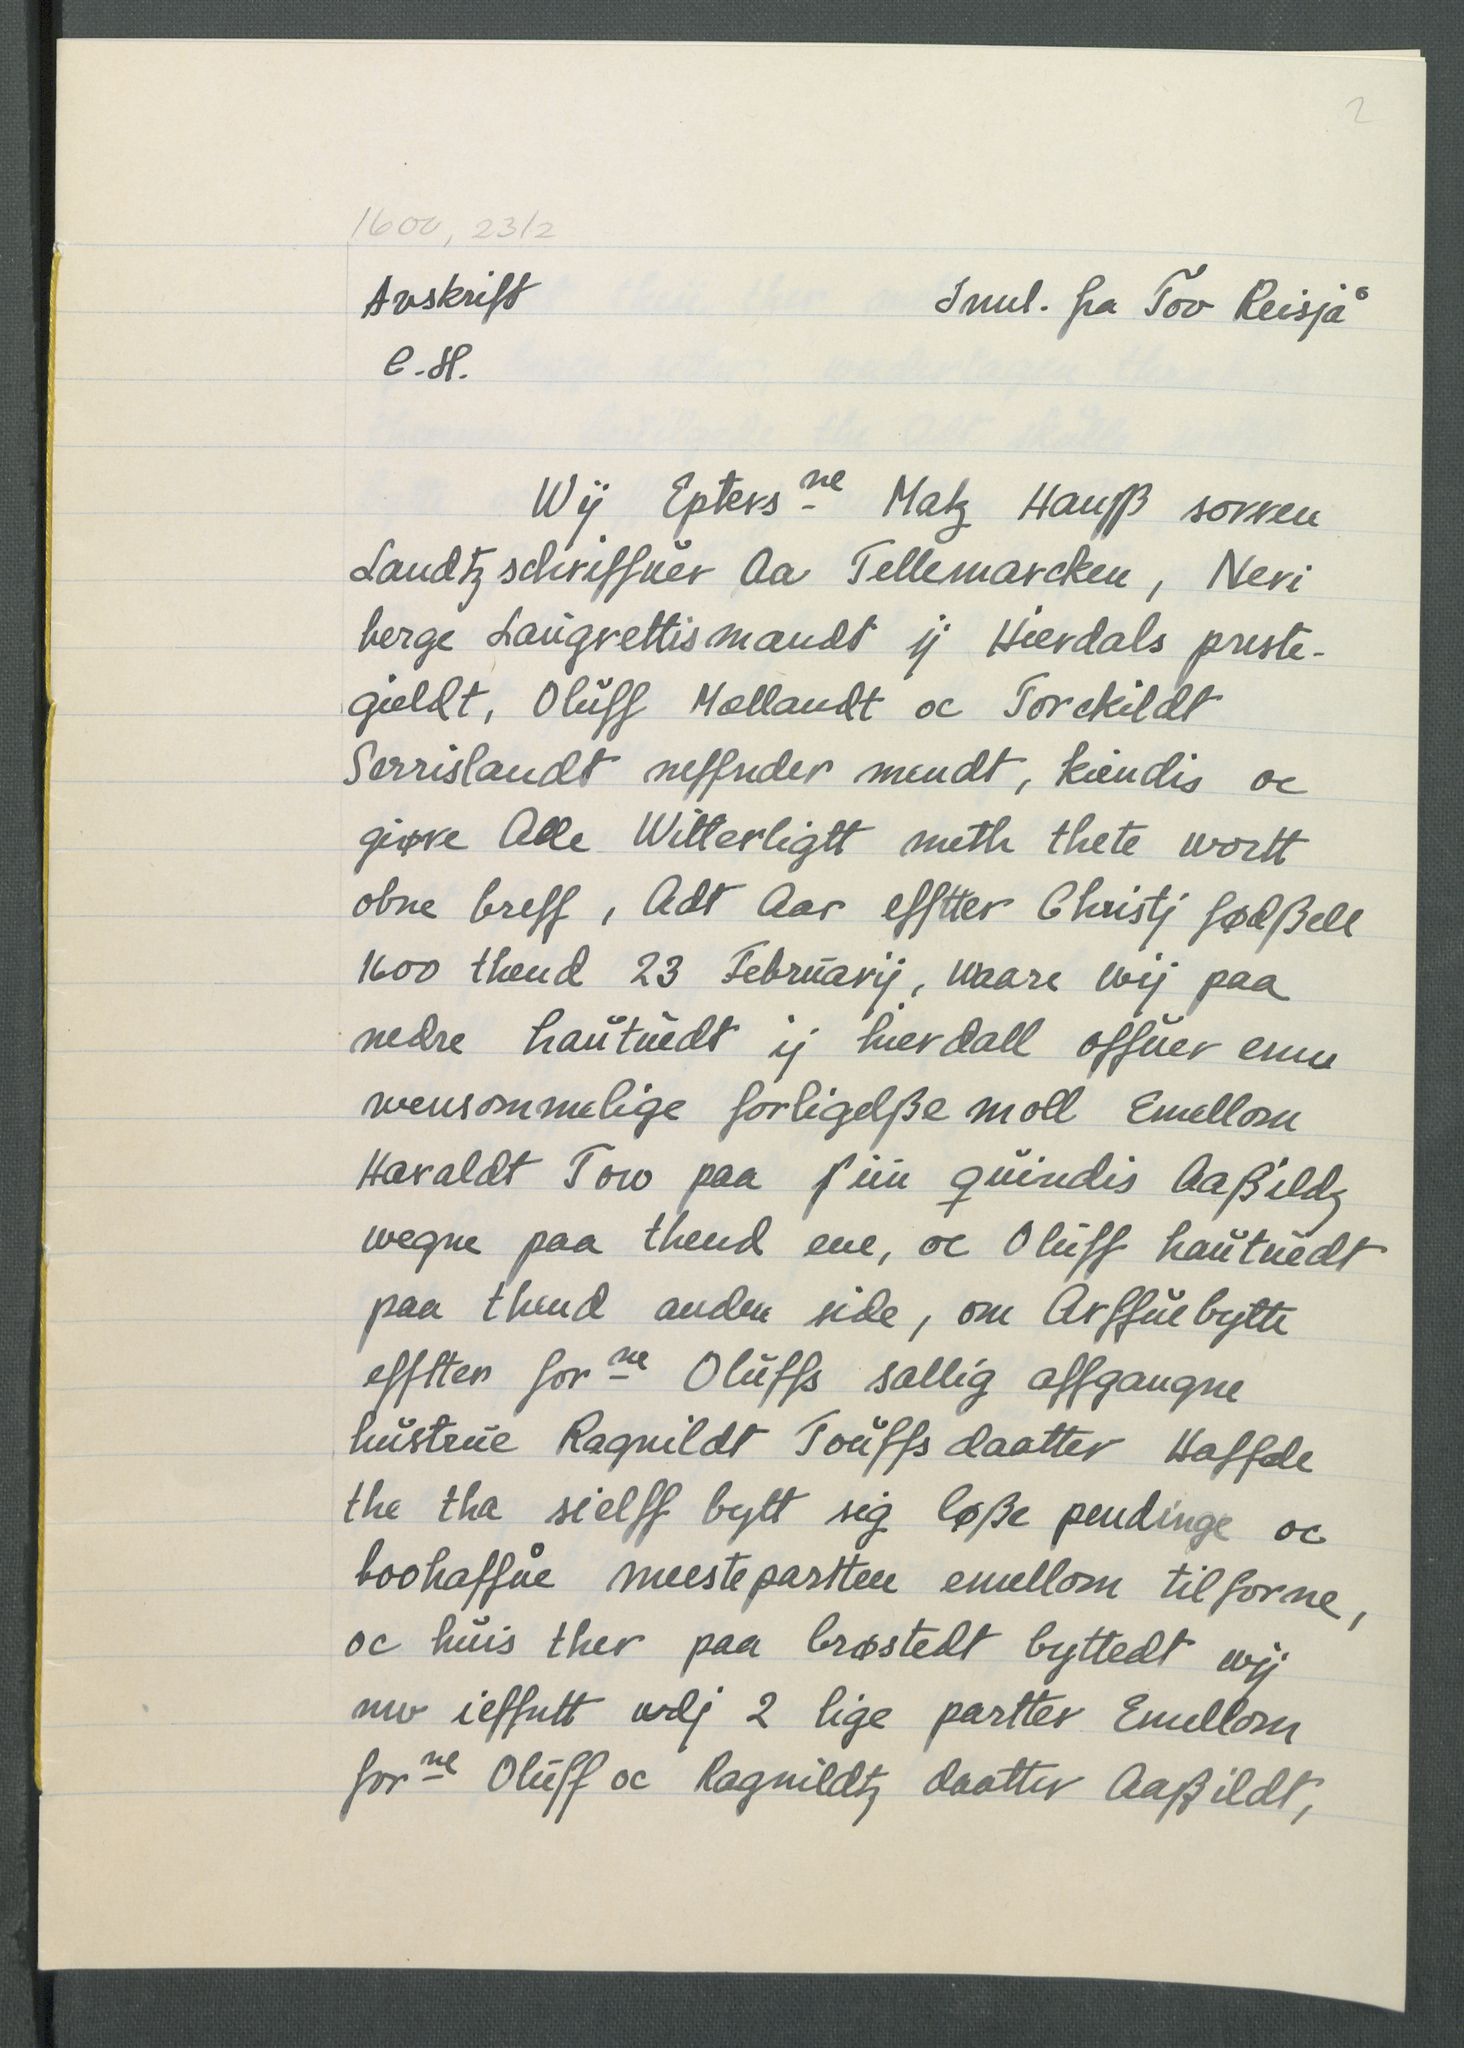 2
1600, 23/2
Avskrift Innl. fra Tov Reisjå
C.H.
Wij Epters ne Matz Hanß sønnen
Landtzschriffuer Aa Tellemarcken, Neri
berge Laugrettismandt ij Hierdals preste-
gieldt, Oluff Mællandt oc Torckildt
Serrislandt neffnder mendt, kiendis oc
giøre Alle Witterligtt meth thete wortt
obne breff, Adt Aar efftter Christj fødßell
1600 thend 23 Februarij, waare wij paa
nedre hautuedt ij hierdall offuer enn
wensommelige forligelße moll Emellom
Haraldt Tow paa siin quindis Aaßildz
wegne paa thend ene, oc Oluff hautuedt
paa thend anden side, om Arffuebytte
efftter for ne Oluffs sallig affgangne
hustrue Ragnildt Touffs daatter Haffde
the tha sielff bytt sig løße pendinge oc
boohaffue meesteparten emellom tilforne,
oc huis ther paa brøstedt byttedt wij
nw ieffntt udj 2 lige partter Emellom
for ne Oluff oc Ragnildtz daatter Aaßildt,